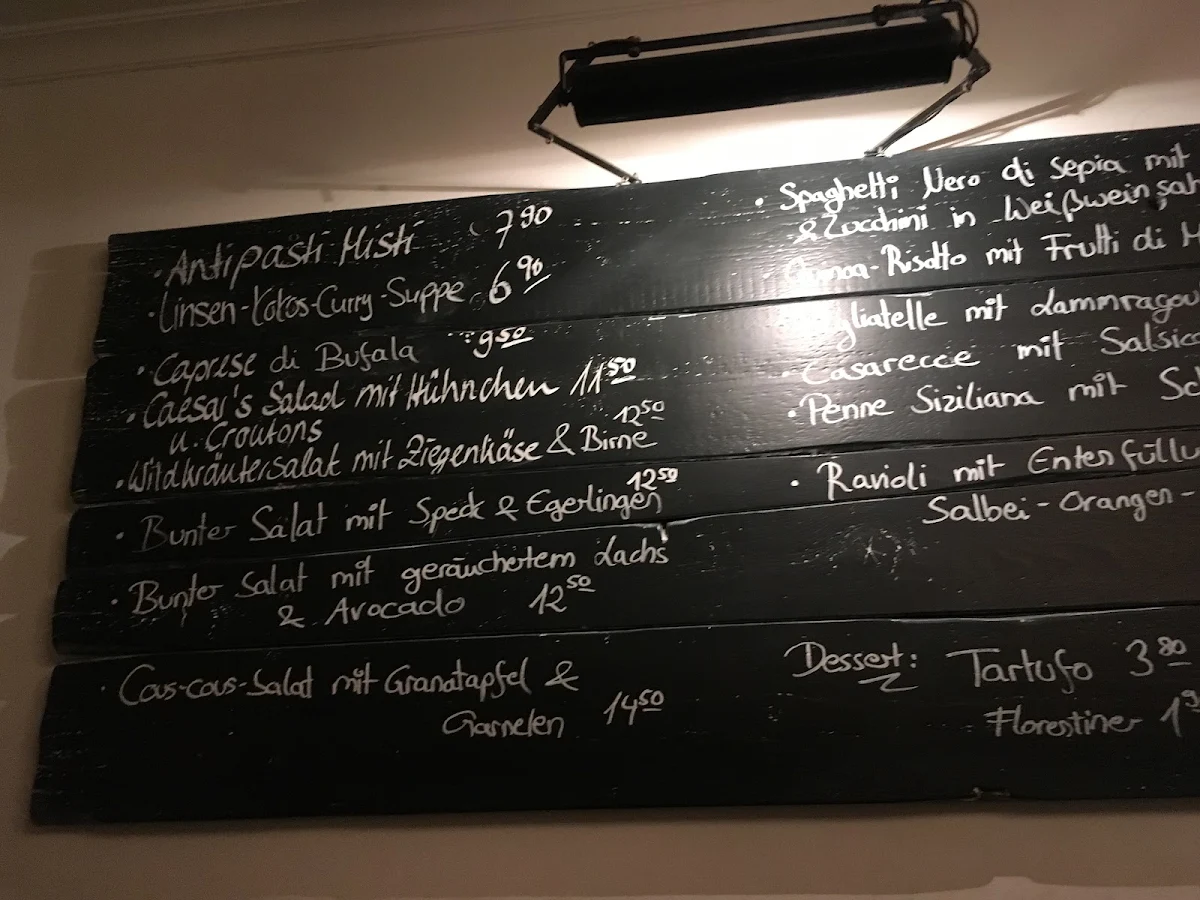 · Antipasti Misti 7 90
· Linsen-Kokos-Curry-Suppe 6 90
· Caprese di Bufala 9 50
· Caesar's Salad mit Hühnchen 11 50
u. Croutons
12 50
· Wildkräutersalat mit Ziegenkäse & Birne
12 50
· Bunter Salat mit Speck & Egerlingen
· Bunter Salat mit geräuchertem Lachs
& Avocado 12 50
· Cous-cous-Salat mit Granatapfel &
Garnelen 14 50
· Spaghetti Nero di Sepia mit
& Zucchini in Weißweinsah
Quinoa-Risotto mit Frutti di M
gliatelle mit Lammragou
· Casarecce mit Salsic
· Penne Siziliana mit Sa
· Ravioli mit Entenfüllu
Salbei-Orangen-
Dessert: Tartufo 3 80
Florestiner 1 9